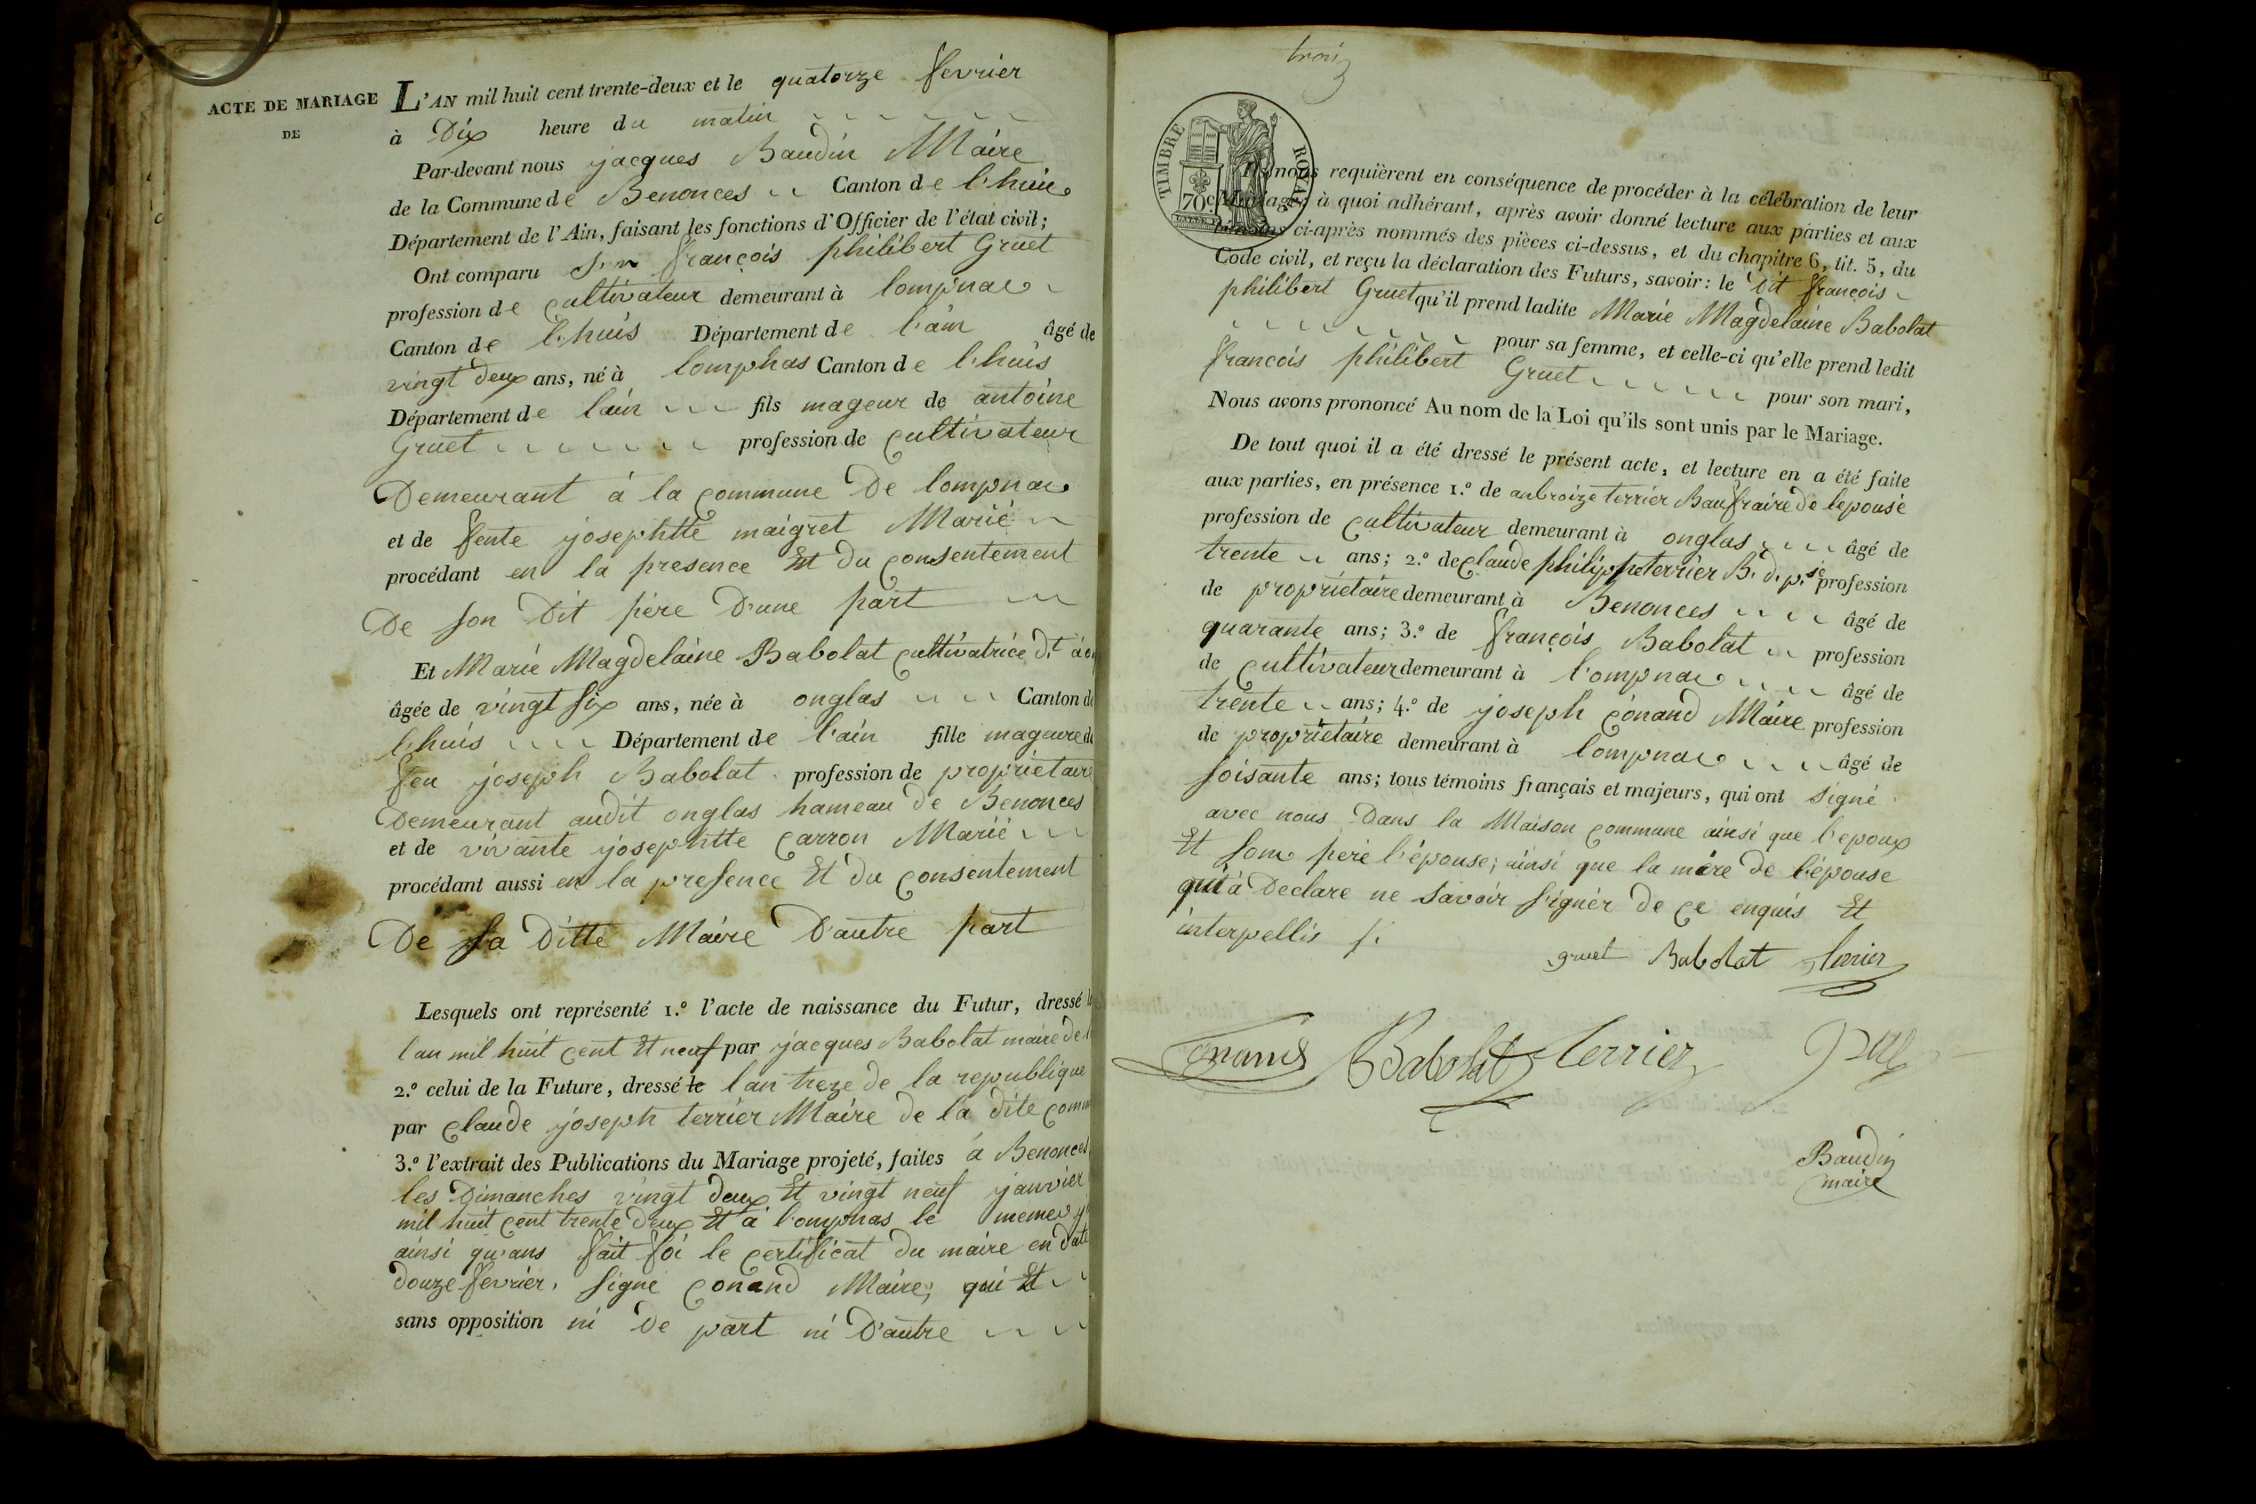 ACTE DE MARIAGE
DE
L'AN mil huit cent trente-deux et le quatorze fevrier
à Dix heure du matin
Par-devant nous jacques Baudin Maire
de la Commune de Benonces Canton de l'huis
Département de l'Ain, faisant les fonctions d'Officier de l'état civil;
Ont comparu françois philibert Gruet
profession de cultivateur demeurant à lompnas
Canton de l'huis Département de l'ain âgé de
vingt deux ans, né à lomphas Canton de l'huis
Département de l'ain fils mageur de antoine
Gruet profession de cultivateur
Demeurant à la commune De lompnas
et de fente josephtte maigret Marié
procédant en la presence Et du consentement
De son Dit père D'une part
Et Marie Magdelaine Babolat cultivatrice dt à
âgée de vingt six ans, née à onglas Canton de
l'huis Département de l'ain fille mageure de
feu joseph Babolat profession de propriétaire
Demeurant audit onglas hameau de Benonces
et de vivante josephtte Carron Marié
procédant aussi en la presence Et du consentement
De sa Ditte Maire D'autre part
Lesquels ont représenté 1.º l'acte de naissance du Futur, dressé
l'an mil huit cent Et neuf par jacques Babolat maire de
2.º celui de la Future, dressé le l'an treze de la republique
par claude joseph terrier Maire de la dite
3.º l'extrait des Publications du Mariage projeté, faites à Benonces
les Dimanches vingt deux Et vingt neuf janvier
mil huit cent trente deux Et à l'ompnas le memes
ainsi qu'ans fait foi le certificat du maire en date
douze fevrier, signé conand Maire, qui Et
sans opposition ni de part ni D'autre
trois
TIMBRE ROYAL
70c
nous requièrent en conséquence de procéder à la célébration de leur
Mariage à quoi adhérant, après avoir donné lecture aux parties et aux
témoins ci-après nommés des pièces ci-dessus, et du chapitre 6, tit. 5, du
Code civil, et reçu la déclaration des Futurs, savoir: le dit françois
philibert Gruet qu'il prend ladite Marie Magdelaine Babolat
pour sa femme, et celle-ci qu'elle prend ledit
francois philibert Gruet pour son mari,
Nous avons prononcé Au nom de la Loi qu'ils sont unis par le Mariage.
De tout quoi il a été dressé le présent acte, et lecture en a été faite
aux parties, en présence 1.º de anbroize terrier Baufraire de lepouse
profession de cultivateur demeurant à onglas âgé de
trente ans; 2.º de claude philippe terrier B. d. p.se profession
de propriétaire demeurant à Benonces âgé de
quarante ans; 3.º de françois Babolat profession
de cultivateur demeurant à l'ompnas âgé de
trente ans; 4.º de joseph conand Maire profession
de propriétaire demeurant à lompnas âgé de
soisante ans; tous témoins français et majeurs, qui ont signé
avec nous Dans la Maison commune ainsi que l'epoux
Et son pere l'épouse; ainsi que la mère de l'épouse
qui à Declare ne savoir signér de ce enquis Et
interpellis
gruet Babolat terrier
Conand Babolat terrier
Baudin
maire